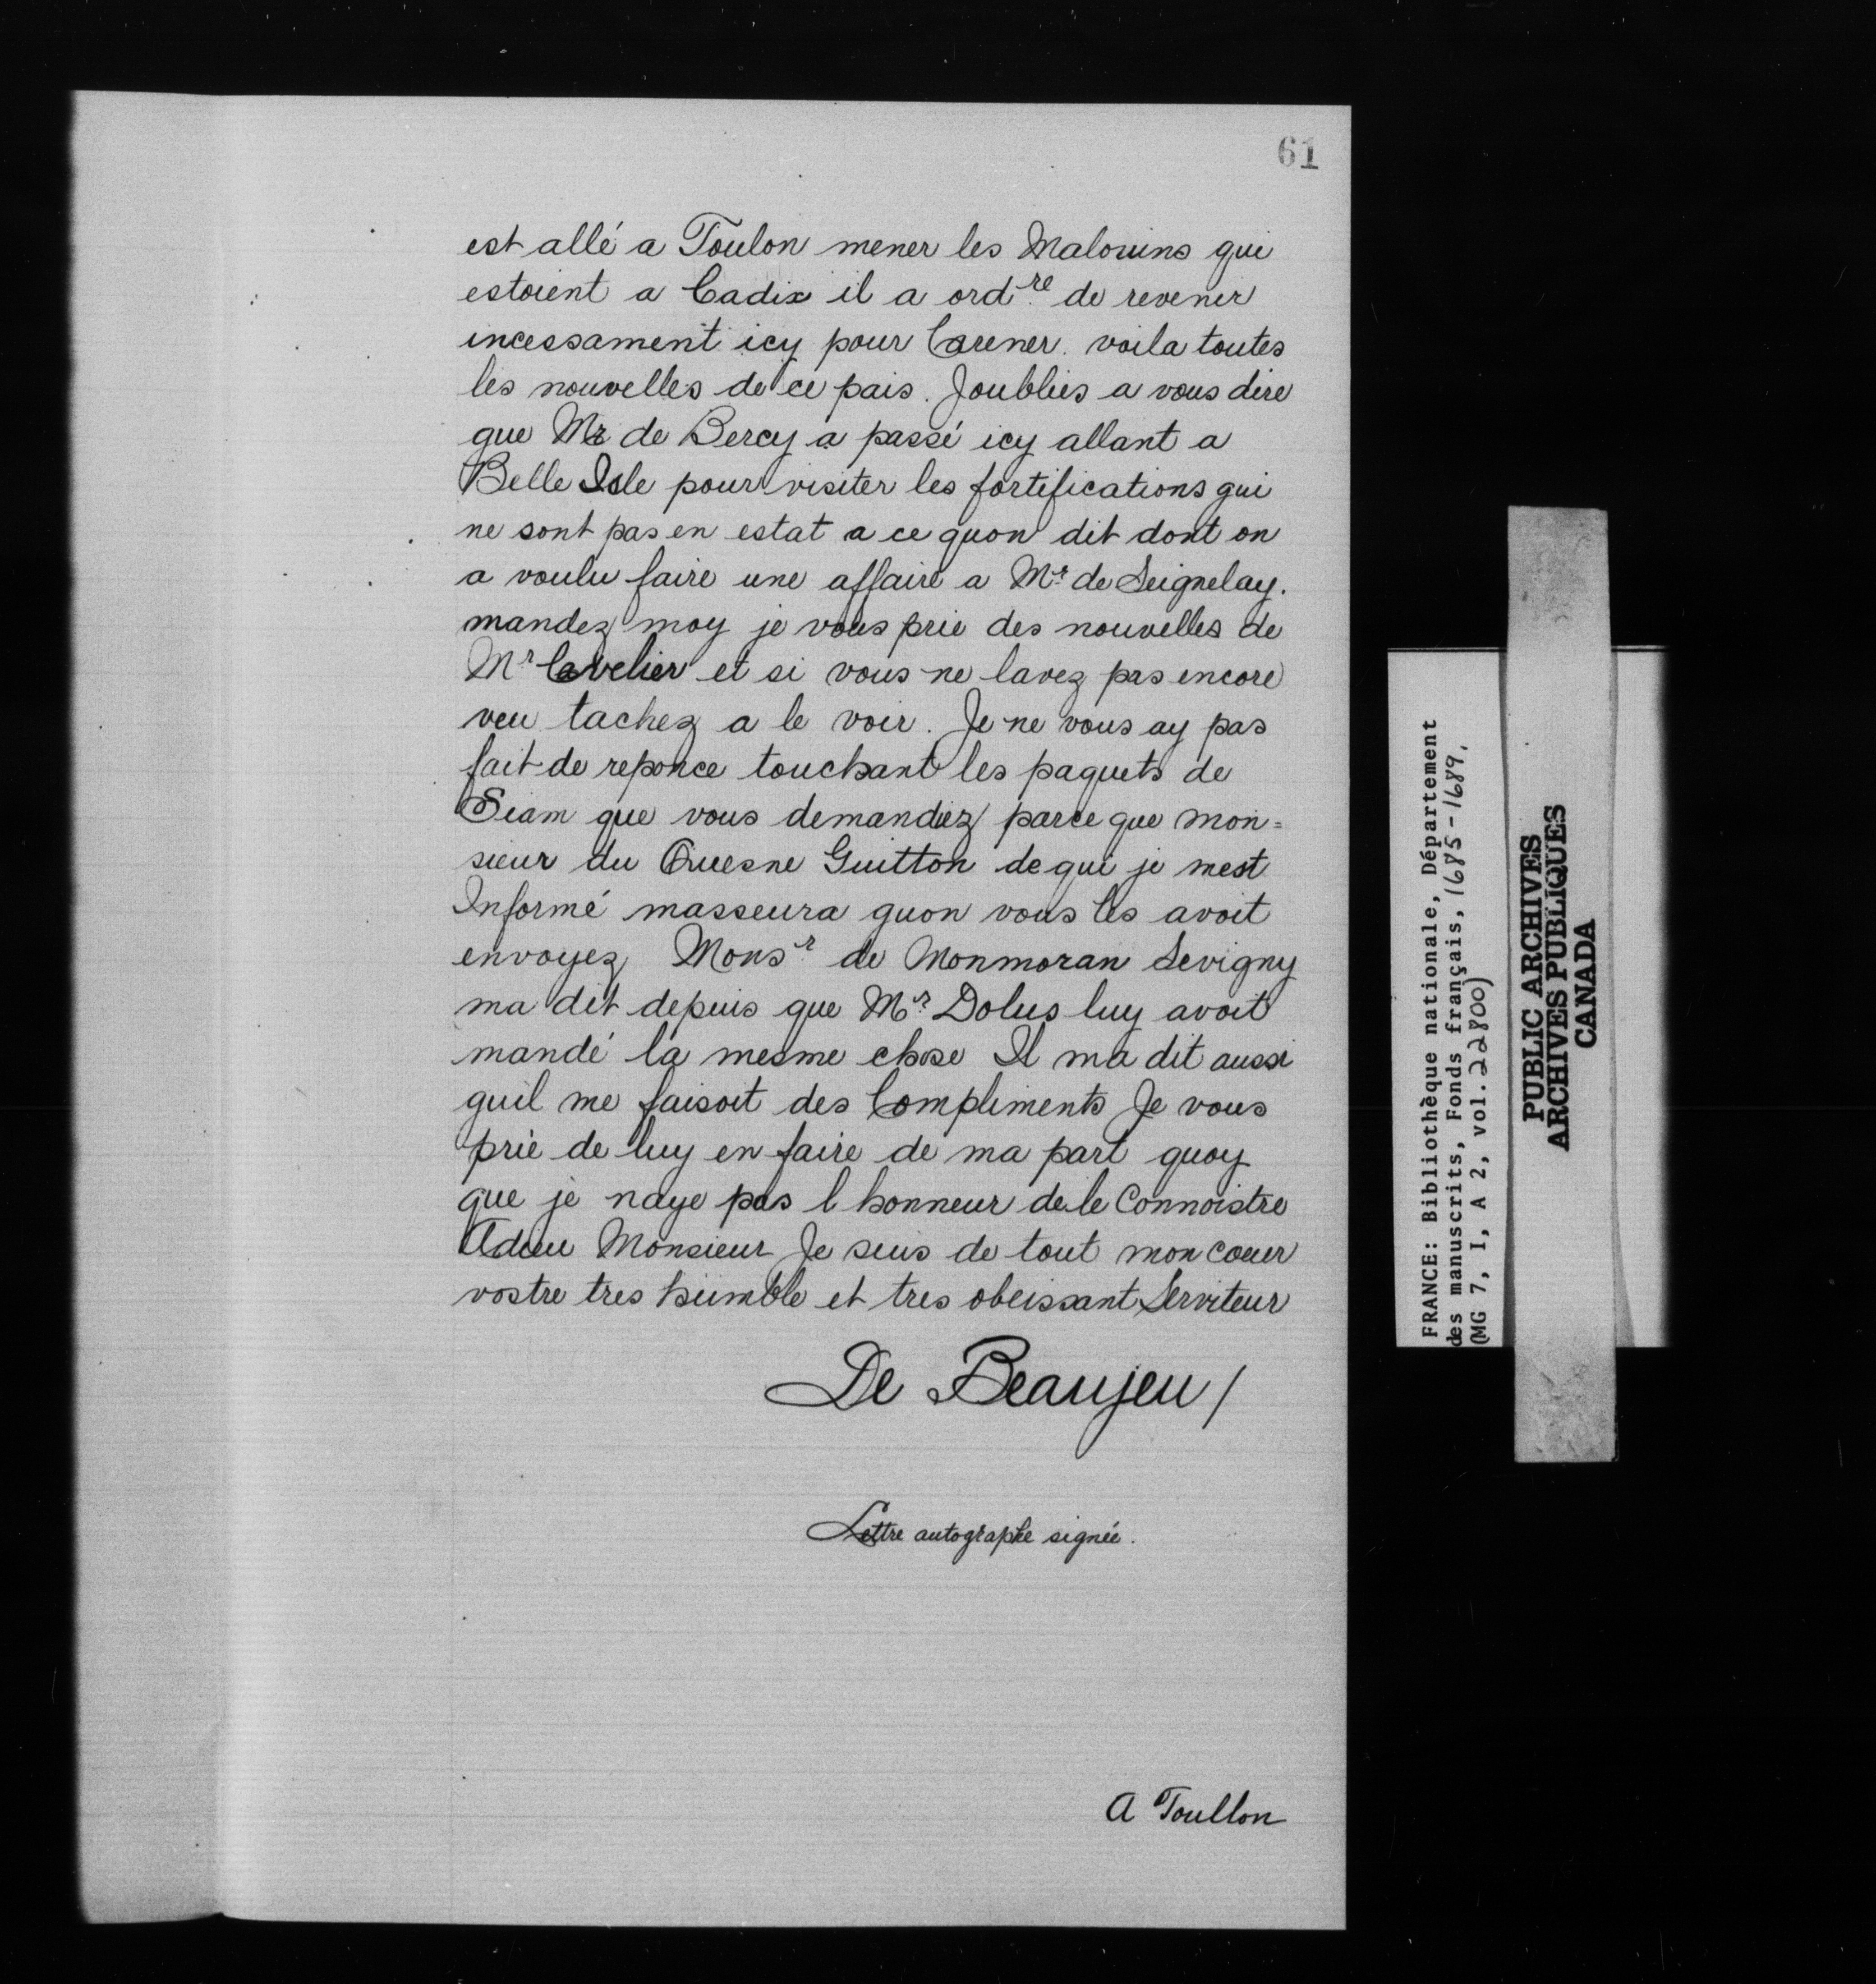 61
est allé a Toulon mener les Malouins qui
estoient a Cadix il a ord.re de revenir
incessament icy pour Carener. voila toutes
les nouvelles de ce pais. Joublies a vous dire
que Mr de Bercy a passé icy allant a
Belle Isle pour visiter les fortifications qui
ne sont pas en estat a ce quon dit dont on
a voulu faire une affaire a Mr. de Seignelay.
mandez moy je vous prie des nouvelles de
Mr Cavelier et si vous ne lavez pas encore
veu tachez a le voir. Je ne vous ay pas
fait de reponce touchant les paquets de
Siam que vous demandiez parce que mon=
sieur du Quesne Guitton de qui je mest
Informé masseura quon vous les avoit
envoyez Monsr. de Monmoran Sevigny
ma dit depuis que Mr. Dolus luy avoit
mandé la mesme chose Il ma dit aussi
quil me faisoit des Compliments Je vous
prie de luy en faire de ma part quoy
que je naye pas l honneur de le Connoistre
Adieu Monsieur Je suis de tout mon coeur
vostre tres humble et tres obeissant Serviteur
De Beaujeu /
Lettre autographe signée.
A Toullon
FRANCE: Bibliothèque nationale, Département
des manuscrits, Fonds français, 1685-1689.
(MG 7, I, A 2, vol. 22800)
PUBLIC ARCHIVES
ARCHIVES PUBLIQUES
CANADA